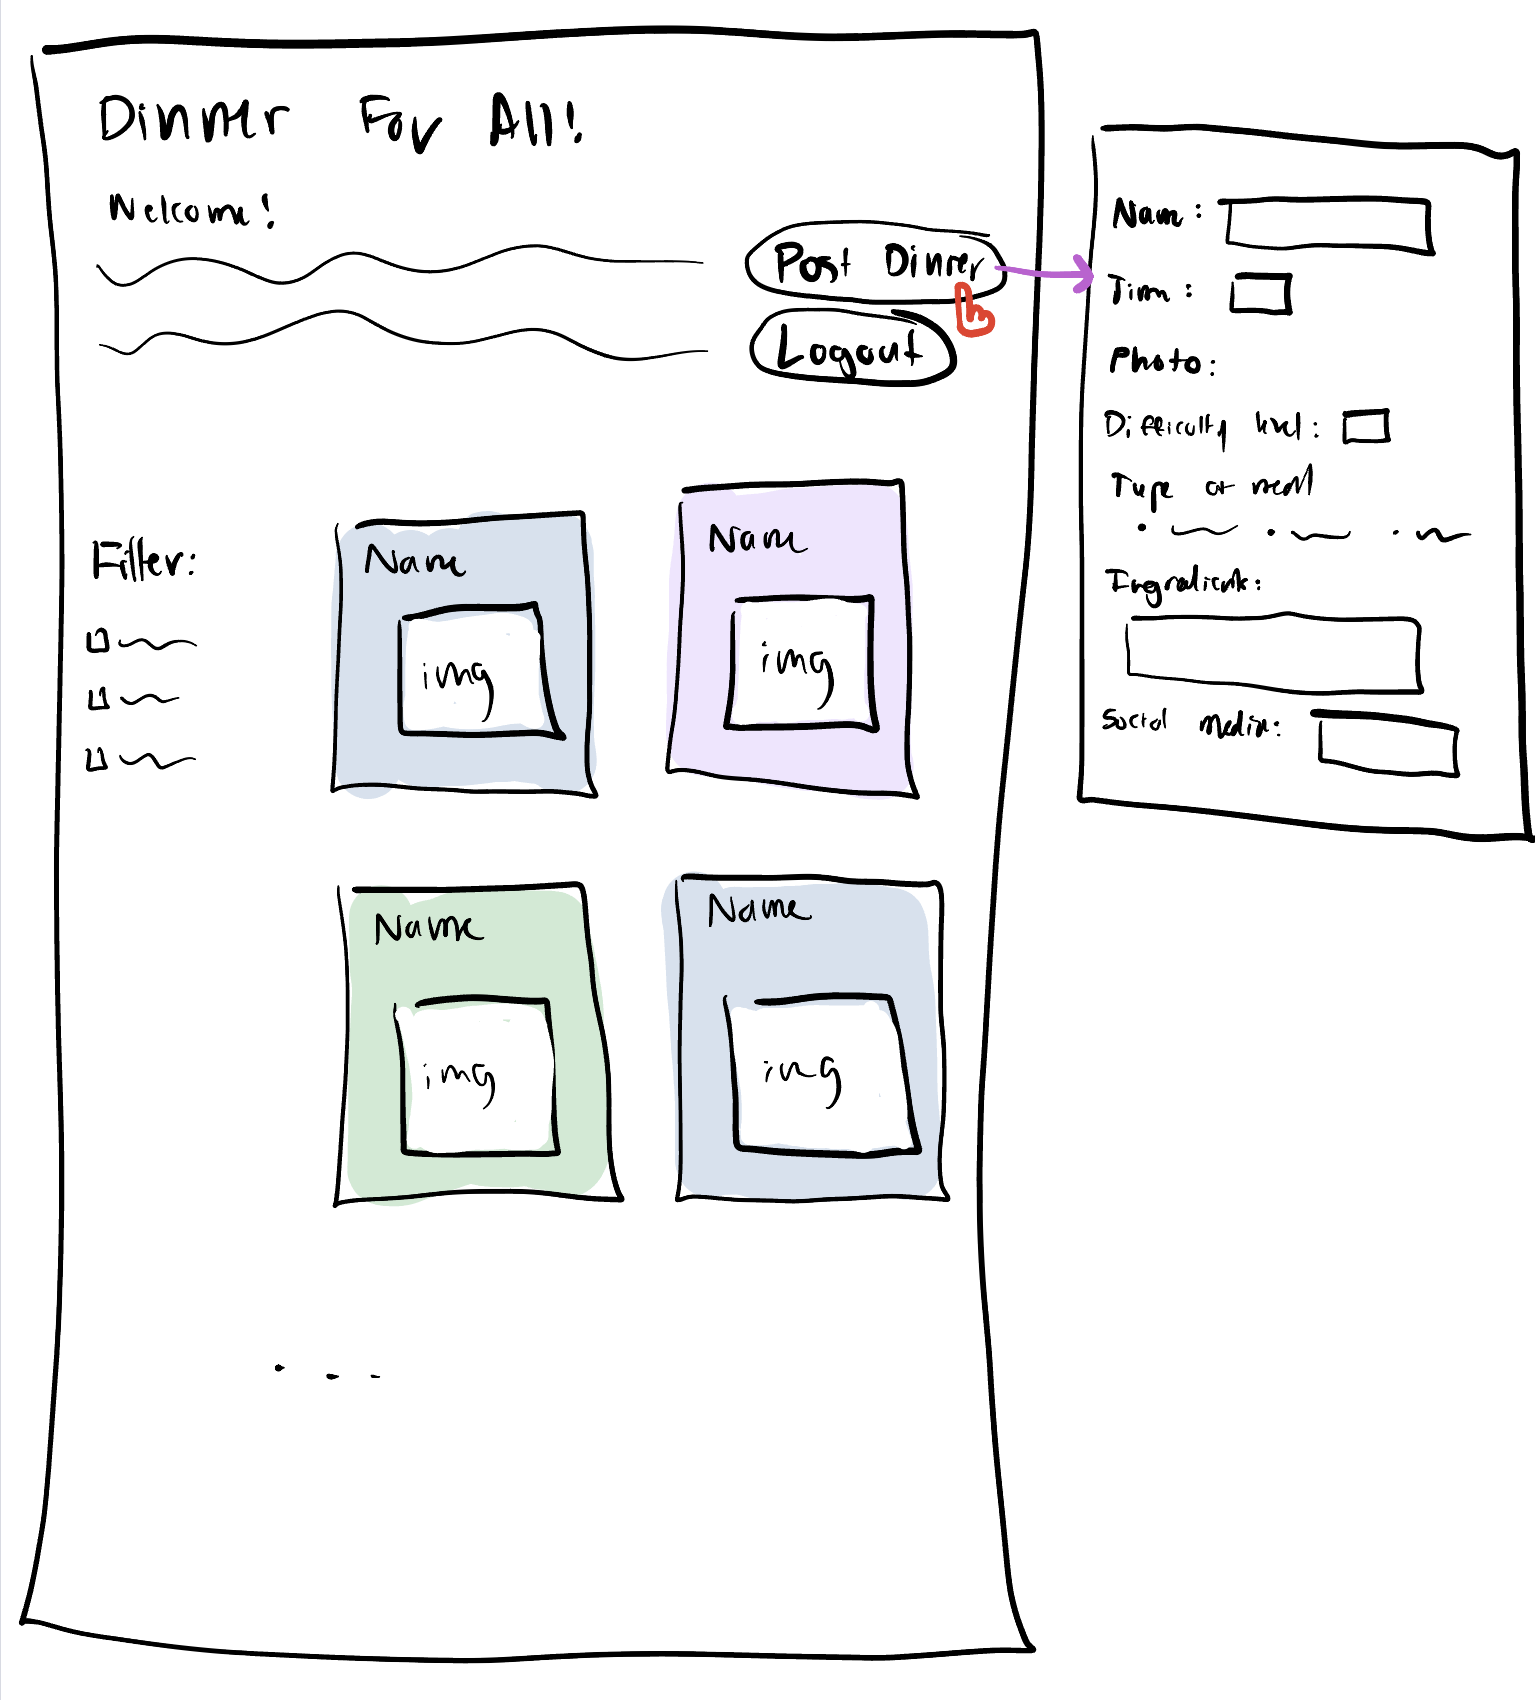 Dinner For All!
Welcome!
Post Dinner
Logout
Filter:
Name
img
Name
img
Name
img
Name
img
Name:
Time:
Photo:
Difficulty level:
Type of meal
Ingredients:
Social Media: